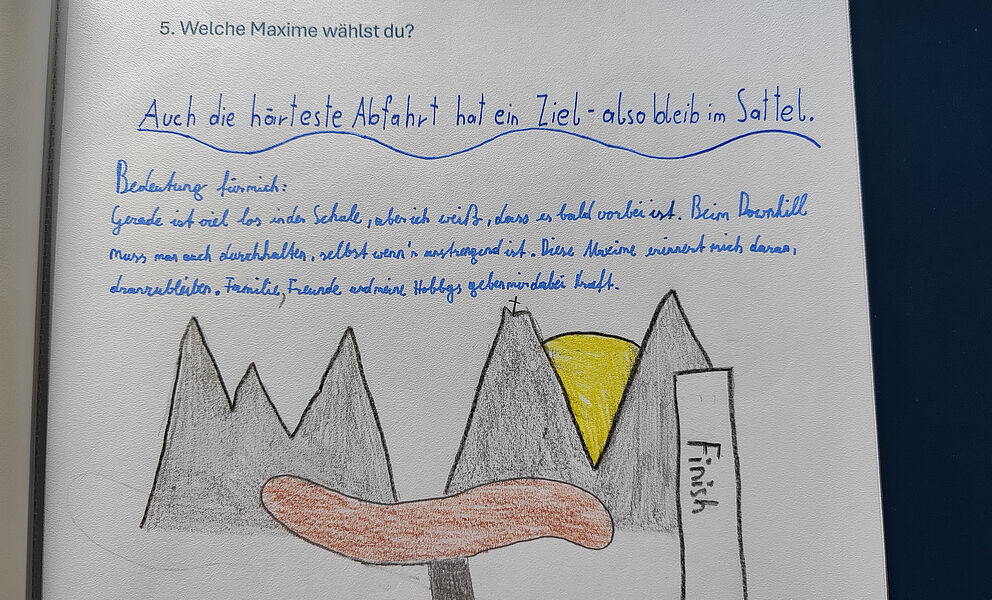 5. Welche Maxime wählst du?
Auch die härteste Abfahrt hat ein Ziel - also bleib im Sattel.
Bedeutung für mich:
Gerade ist viel los in der Schule, aber ich weiß, dass es bald vorbei ist. Beim Downhill
muss man auch durchhalten, selbst wenn's anstrengend ist. Diese Maxime erinnert mich daran,
dranzubleiben. Familie, Freunde und meine Hobbys geben mir dabei Kraft.
Finish